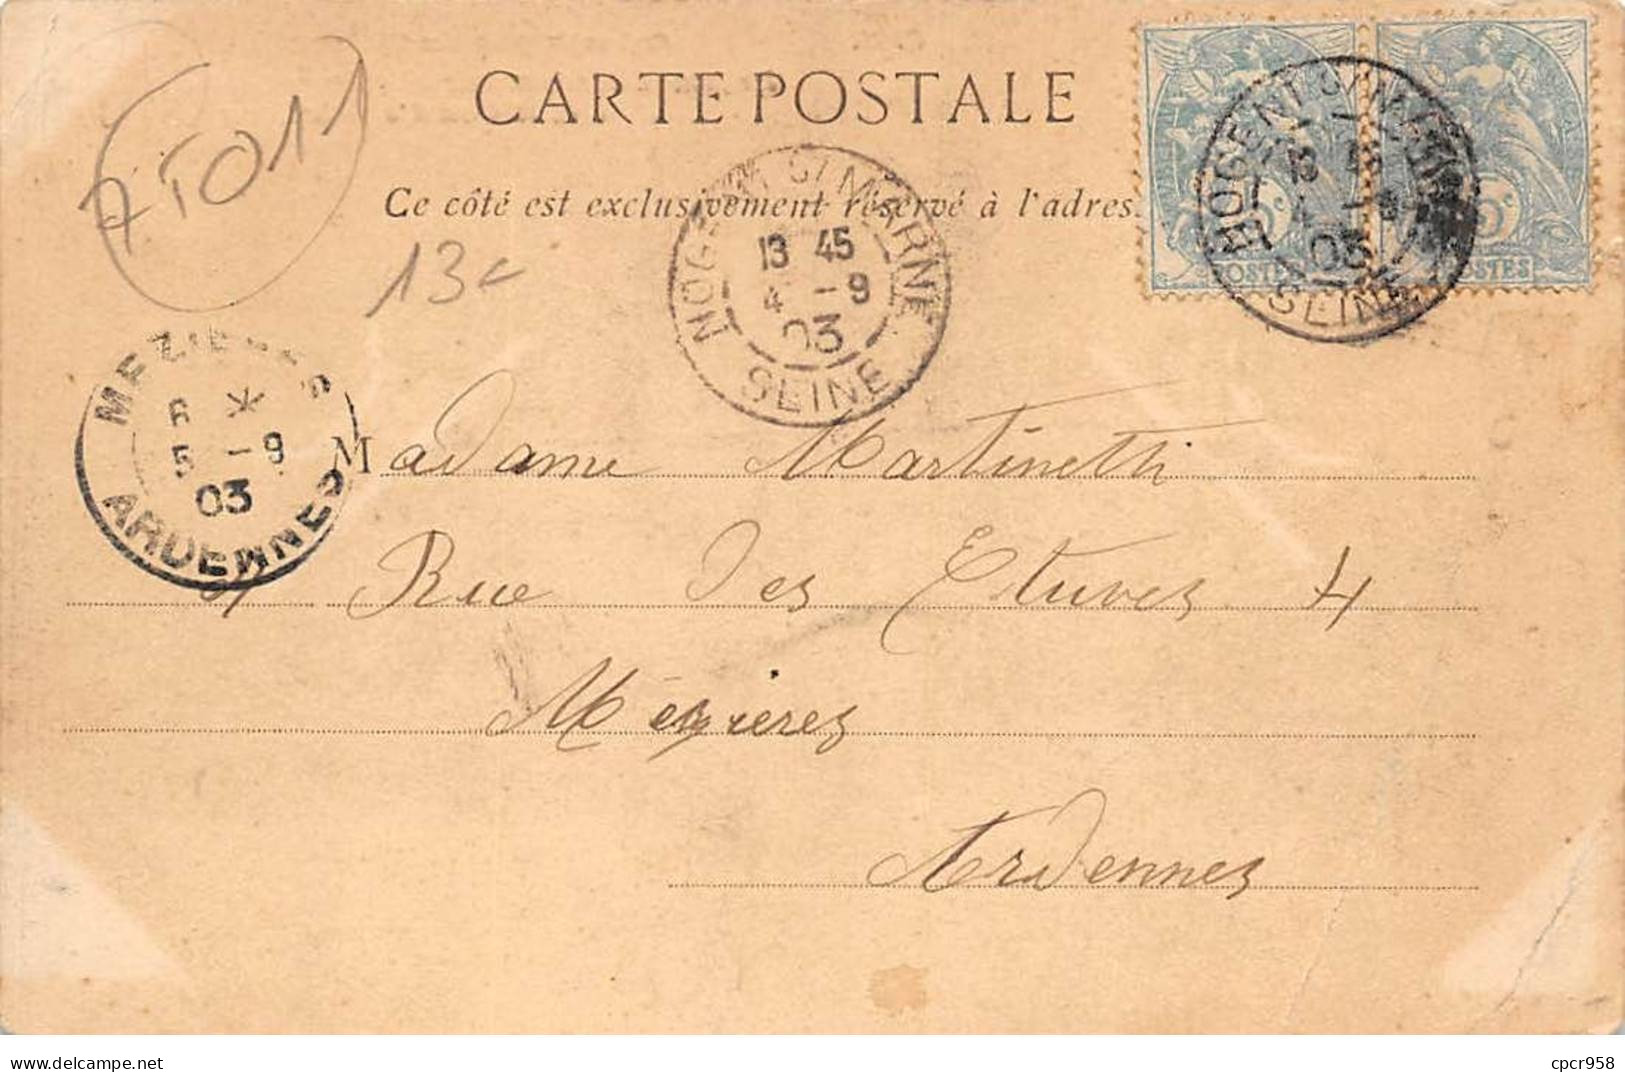 CARTE POSTALE
Ce côté est exclusivement réservé à l'adres
7T011
13c
NOGENT S/ MARNE
13 45
4 -9
03
SEINE
NOGENT S/ MARNE
13 45
4 -9
03
SEINE
5c
POSTES
5c
POSTES
MEZIERES
6 *
5 -9
03
ARDENNES
Madame Martinetti
Rue des Etuves 4
Mézieres
Ardennes
cpcr958